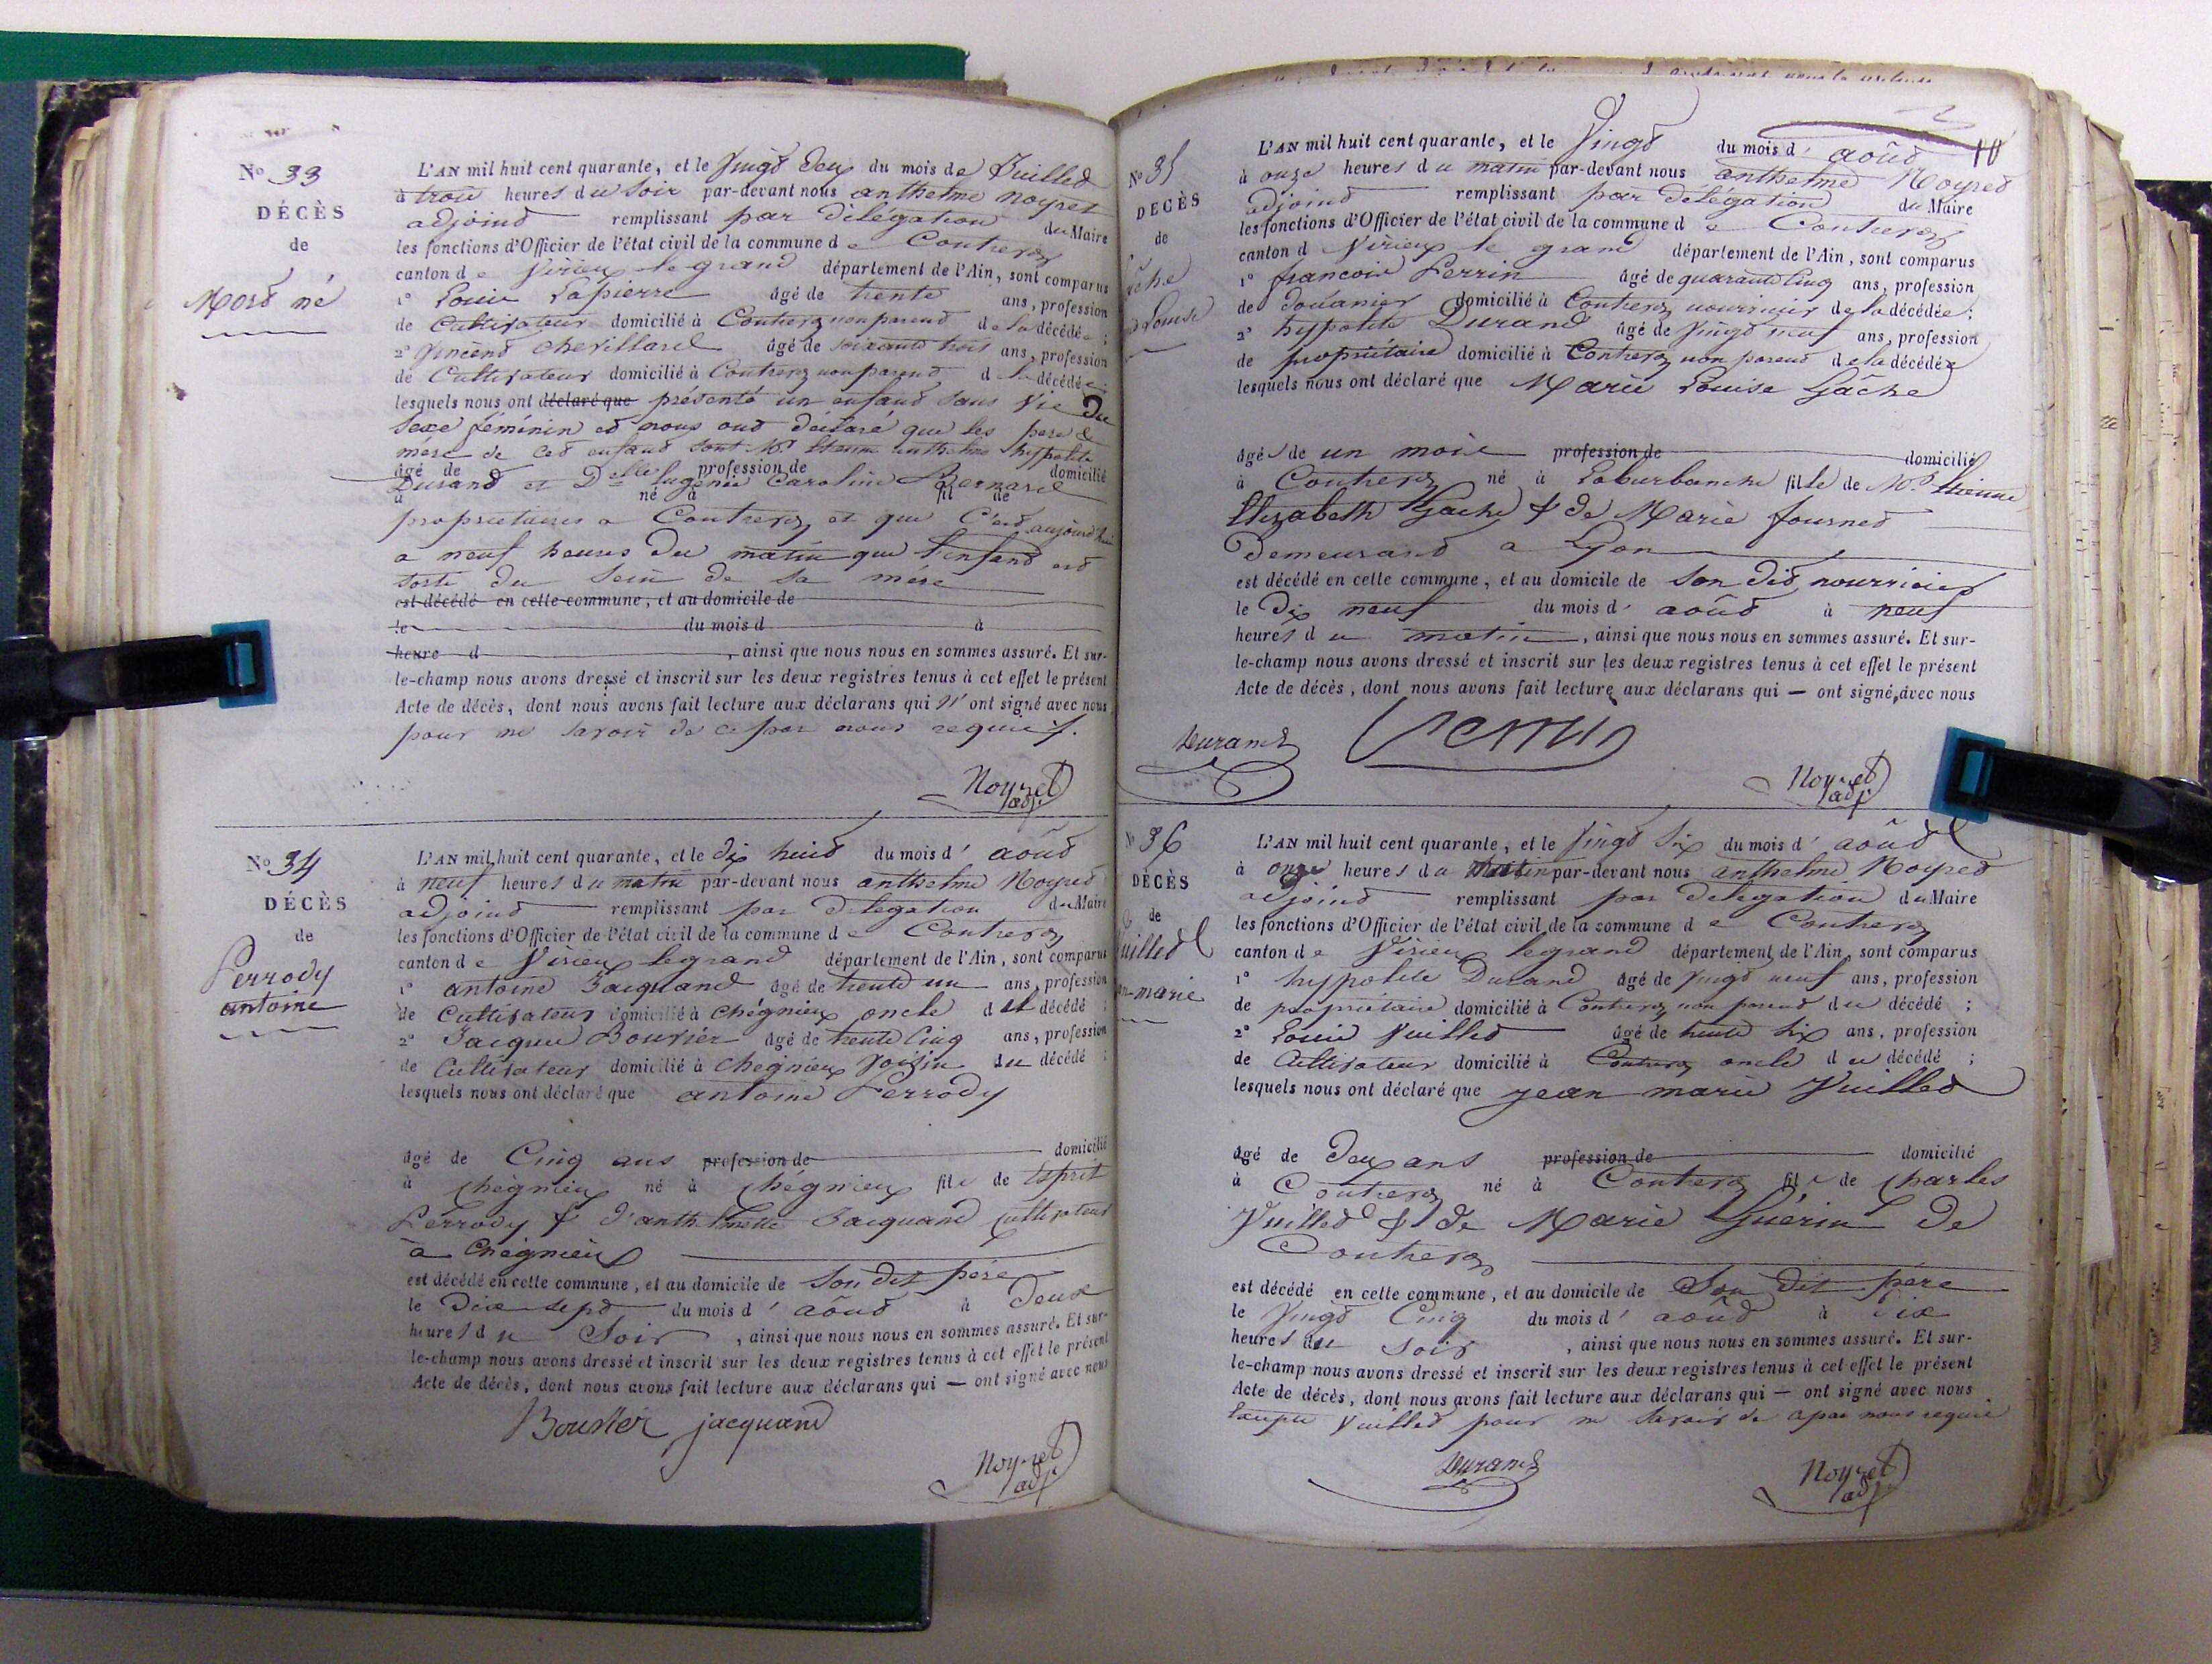 No 33
DÉCÈS
de
Mort né
L'AN mil huit cent quarante, et le Vingt deux du mois de Juillet
à trois heures du Soir par-devant nous anthelme noyret
adjoint remplissant par délégation du Maire
les fonctions d'Officier de l'état civil de la commune de Contrevoz
canton de Virieux le grand département de l'Ain, sont comparus
1º Louis Lapierre âgé de trente ans, profession
de Cultivateur domicilié à Contrevoz non parent de la décédée;
2º Vincent Chevillard âgé de soixante trois ans, profession
de Cultivateur domicilié à Contrevoz non parent d la décédée;
lesquels nous ont déclaré que présenté un enfant sans Vie Du
Sexe féminin et nous ont déclaré que les pere &
mère de cet enfant sont Mr anthelme hyppolite
âgé de profession de domicilié
Durand et Dlle Eugenie Caroline Bernard
à né à fil de
proprietaires a Contrevoz et que C'est aujourd'hui
a neuf heures du matin que l'enfant est
sorti du Sein de sa mère
est décédé en cette commune, et au domicile de
le du mois d à
heure d , ainsi que nous nous en sommes assuré. Et sur-
le-champ nous avons dressé et inscrit sur les deux registres tenus à cet effet le présent
Acte de décès, dont nous avons fait lecture aux déclarans qui n' ont signé avec nous
pour ne savoir de ce par nous requis.
Noyret
adj.
No 34
DÉCÈS
de
Perrody
antoine
L'AN mil huit cent quarante, et le dix huit du mois d' août
à neuf heures du matin par-devant nous anthelme Noyret
adjoint remplissant par délégation du Maire
les fonctions d'Officier de l'état civil de la commune de Contrevoz
canton de Virieux legrand département de l'Ain, sont comparus
1º antoine Jacquand âgé de trente un ans, profession
de Cultivateur domicilié à Chégnieux oncle d u décédé;
2º Jacques Bouvier âgé de trente Cinq ans, profession
de Cultivateur domicilié à Chegnieux Voisin du décédé;
lesquels nous ont déclaré que antoine Perrody
âgé de Cinq ans profession de domicilié
à Chégnieux né à Chégnieux fils de Esprit
Perrody & d'anthelmette Jacquand Cultivateurs
à Chegnieux
est décédé en cette commune, et au domicile de Son dit père
le Dix sept du mois d' août à Deux
heures du Soir , ainsi que nous nous en sommes assuré. Et sur-
le-champ nous avons dressé et inscrit sur les deux registres tenus à cet effet le présent
Acte de décès, dont nous avons fait lecture aux déclarans qui — ont signé avec nous
Bouvier jacquand
Noyret
adj.
10
No 35
DÉCÈS
de
Gâche
Louise
L'AN mil huit cent quarante, et le Vingt du mois d' août
à onze heures du matin par-devant nous anthelme Noyret
adjoint remplissant par délégation du Maire
les fonctions d'Officier de l'état civil de la commune de Contrevoz
canton d Virieux le grand département de l'Ain, sont comparus
1º francois Perrin âgé de quarante Cinq ans, profession
de douanier domicilié à Contrevoz nourricier de la décédée;
2º hyppolite Durand âgé de Vingt neuf ans, profession
de propriétaire domicilié à Contrevoz non parent de la décédée
lesquels nous ont déclaré que Marie Louise Gâche
âgé de un mois profession de domicilié
à Contrevoz né à Laburbanche fille de Mr Etienne
Elizabeth Gache & de Marie fournet
Demeurant a Lyon
est décédé en cette commune, et au domicile de Son dit nourricier
le Dix neuf du mois d' août à neuf
heures du matin, ainsi que nous nous en sommes assuré. Et sur-
le-champ nous avons dressé et inscrit sur les deux registres tenus à cet effet le présent
Acte de décès, dont nous avons fait lecture aux déclarans qui — ont signé, avec nous
Durand Perrin
Noyret
adj.
No 36
DÉCÈS
de
Vuillet
jean-marie
L'AN mil huit cent quarante, et le Vingt Six du mois d' août
à onze heures du Matin par-devant nous anthelme Noyret
adjoint remplissant par délégation du Maire
les fonctions d'Officier de l'état civil de la commune de Contrevoz
canton de Virieux legrand département de l'Ain, sont comparus
1º hyppolite Durand âgé de Vingt neuf ans, profession
de propriétaire domicilié à Contrevoz non parent du décédé;
2º Louis Vuillet âgé de trente Six ans, profession
de Cultivateur domicilié à Contrevoz oncle du décédé;
lesquels nous ont déclaré que jean marie Vuillet
âgé de Deux ans profession de domicilié
à Contrevoz né à Contrevoz fils de Charles
Vuillet & de Marie Guérin de
Contrevoz
est décédé en cette commune, et au domicile de Son dit père
le Vingt Cinq du mois d' août à Dix
heures du Soir , ainsi que nous nous en sommes assuré. Et sur-
le-champ nous avons dressé et inscrit sur les deux registres tenus à cet effet le présent
Acte de décès, dont nous avons fait lecture aux déclarans qui — ont signé avec nous
Excepté Vuillet pour ne savoir de ce par nous requis
Durand
Noyret
adj.